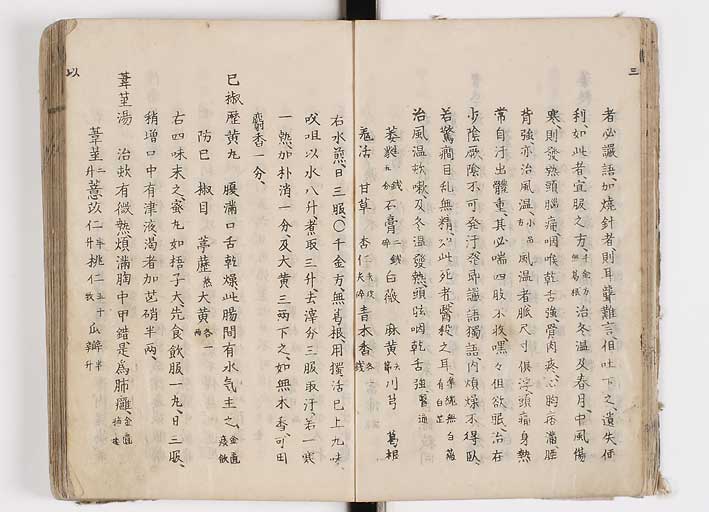 三
者必讝語、加燒針者則耳聾難言、但吐下之、遺失便
利、如此者、宜服之方、千金方無葛根 治冬温及春月、中風傷
寒則發熱頭脳痛咽喉乾舌強骨肉疼心胸痞滿、腰
背強、亦治風温、風温者脈尺寸俱浮、頭痛身熱
常自汗出體重、其必喘、四肢不收、嘿々但欲眠、治在
少陰厥陰、不可発汗、発即讝語獨語、内煩燥、不得臥、
若驚癇、目乱無精、如此死者、醫殺之耳
治風温欬嗽、及冬温發熱、頭咽乾舌強
萎蕤 石膏 白薇 麻黄 川芎 葛根
羗活 甘草 杏仁 青木香
右水煎、日三服、〇千金方、無葛根、用獨活已上九味、
㕮咀、以水八升、煮取三升、去滓、分三服取汗、若一寒
一熱、加朴消一分、及大黄三両下之、如無木香、可用
麝香一分、
已椒歴黄丸 腹滿口舌乾燥、此腸間有水気、主之、金匱痰飲
防已 椒目 葶藶熬 大黄各一両
右四味末之、蜜丸如梧子大、先食飲服一丸、日三服、
稍増、口中有津液、渇者加芒硝半両、
葦莖湯 治欬有微熱、煩滿、胸中甲錯、是為肺癰、金匱
葦莖二升 薏苡仁半升 桃仁五十枚 瓜瓣半升